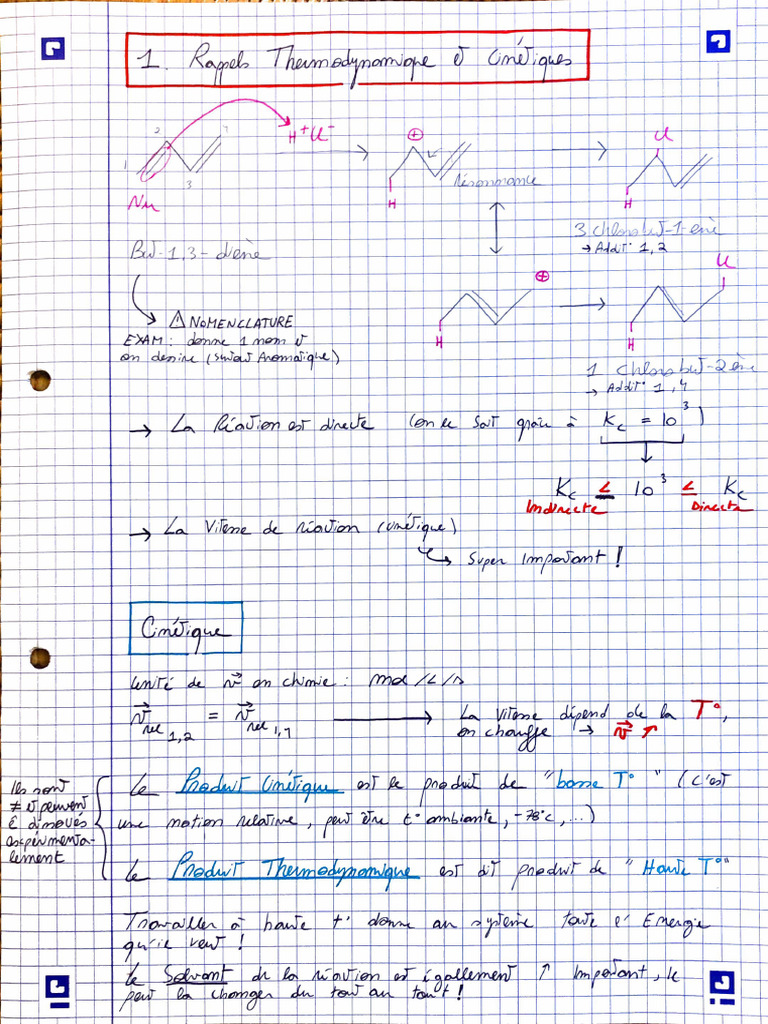 1. Rappels Thermodynamique et Cinétiques
1
2
3
4
Nu
H⁺Cl⁻
⊕
H
Résonnance
Cl
H
But-1,3-diène
3 chlorobut-1-ène
→ Addit° 1,2
⚠ NOMENCLATURE
EXAM : donne 1 nom et
on dessine (surtout Aromatique)
⊕
H
Cl
H
1 chlorobut-2ène
→ Addit° 1,4
→ La Réaction est directe (on le sait grâce à Kc = 10³)
Kc ≤ 10³ ≤ Kc
Indirecte Directe
→ La Vitesse de réaction (cinétique)
↳ Super Important !
Cinétique
Unité de v en chimie : mol/L/s
v réel 1,2 = v réel 1,4 → La Vitesse dépend de la T°,
on chauffe → v ↑
Ils sont
≠ et peuvent
ê trouvés
expérimenta-
lement
Le Produit Cinétique est le produit de "basse T°" (C'est
une notion relative, peut être t° ambiante, -78°C, ...)
Le Produit Thermodynamique est dit produit de "Haute T°"
Travailler à haute t° donne au système toute l'Energie
qu'il veut !
Le Solvant de la réaction est égallement ↑ Important, il
peut la changer du tout au tout !